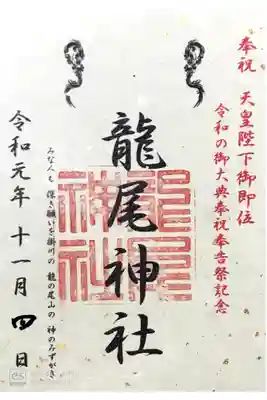 奉祝 天皇陛下御即位
令和の御大典奉祝奉告祭記念
龍尾神社
みな人も 深き願いを掛川の 龍の尾山の 神のみずがき
令和元年 十一月 四日